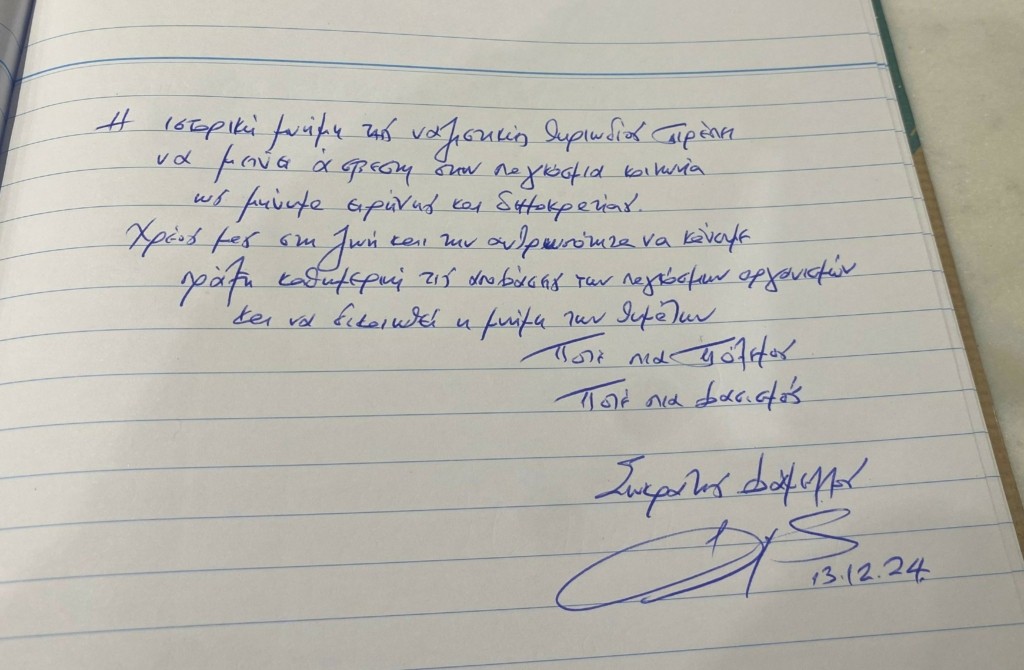 Η ιστορική μνήμη της ναζιστικής θηριωδίας πρέπει
να μείνει άσβεστη στην παγκόσμια κοινωνία
ως μήνυμα ειρήνης και δημοκρατίας.
Χρέος μας στη ζωή και την ανθρωπότητα να κάνουμε
πράξη καθημερινή τις αποφάσεις των παγκόσμιων οργανισμών
και να δικαιωθεί η μνήμη των θυμάτων
Ποτέ πια πόλεμος
Ποτέ πια φασισμός
Σωκράτης Φάμελλος
13.12.24